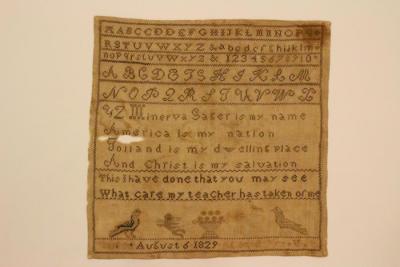 AABCCDDEFGHIJKLMNOPQ
RSTUVWXYZ &abcdefghijklm
nopqrstuvwxyz & 12345678910
ABCDEFGHIKLM
NOPQRSTUVWX
YZ Minerva Gager is my name
America is my nation
Tolland is my dwelling place
And Christ is my salvation
This I have done that you may see
What care my teacher has taken of me
August 6 1829